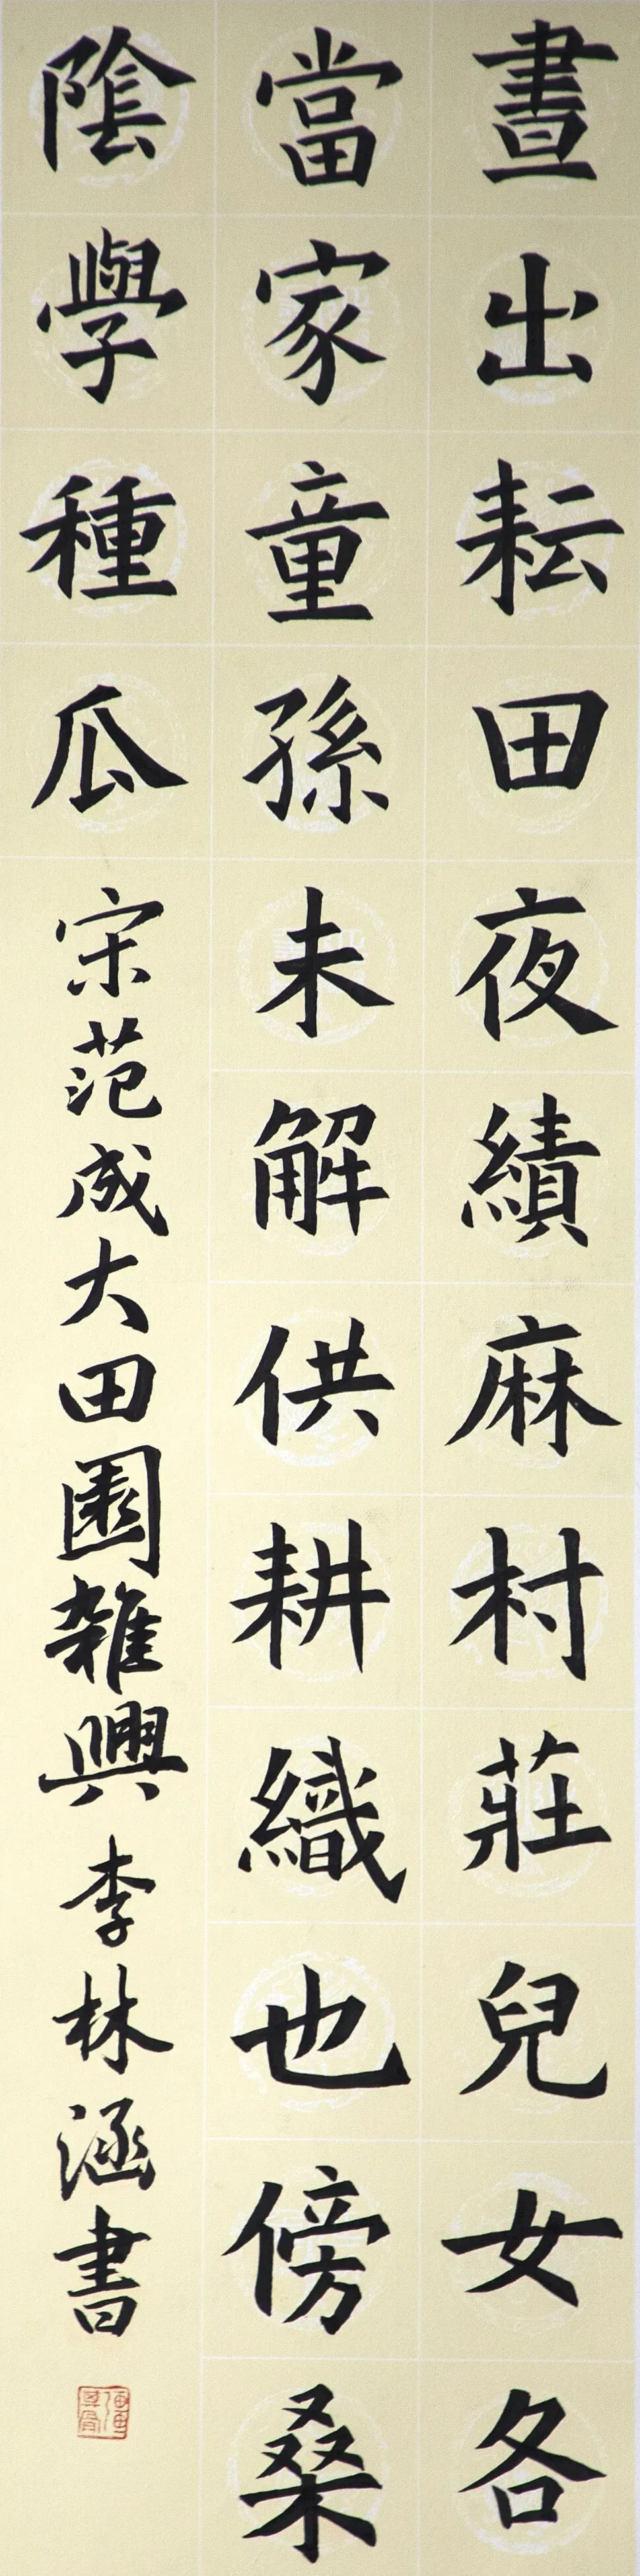 晝出耘田夜績麻村莊兒女各
當家童孫未解供耕織也傍桑
陰學種瓜 宋范成大田園雜興 李林涵書